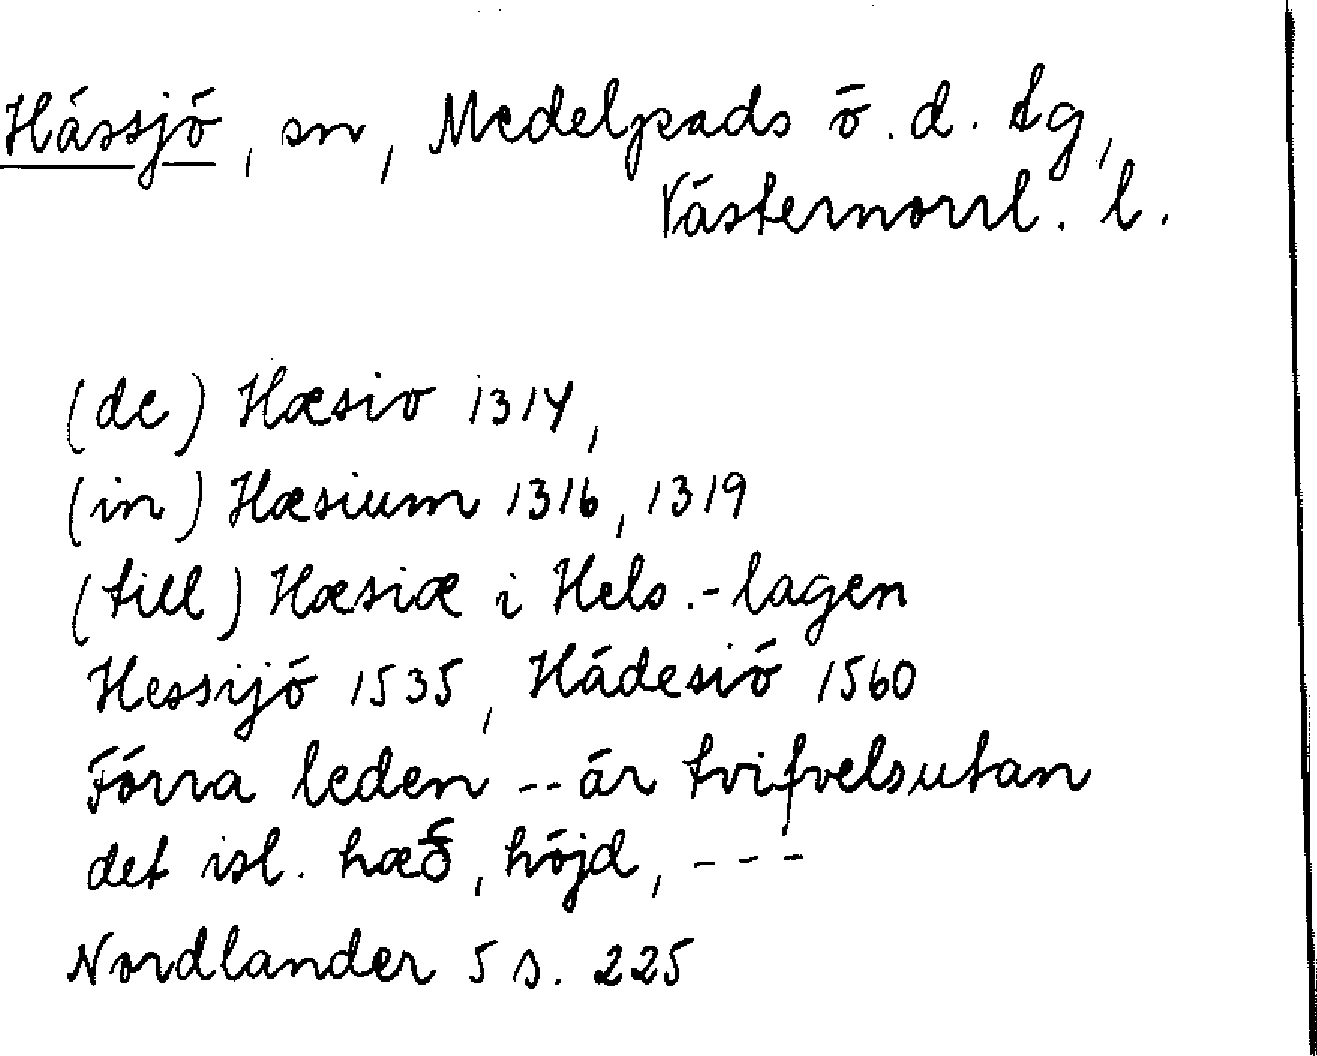 Hässjö, sn, Medelpads ö. d. tg,
Västernorrl. l.
(de) Hæsio 1314,
(in) Hæsium 1316, 1319
(till) Hæsiæ i Hels.-lagen
Hessijö 1535, Hädesiö 1560
Förra leden -- är tvifvelsutan
det isl. hæð, höjd, ---
Nordlander 5 s. 225